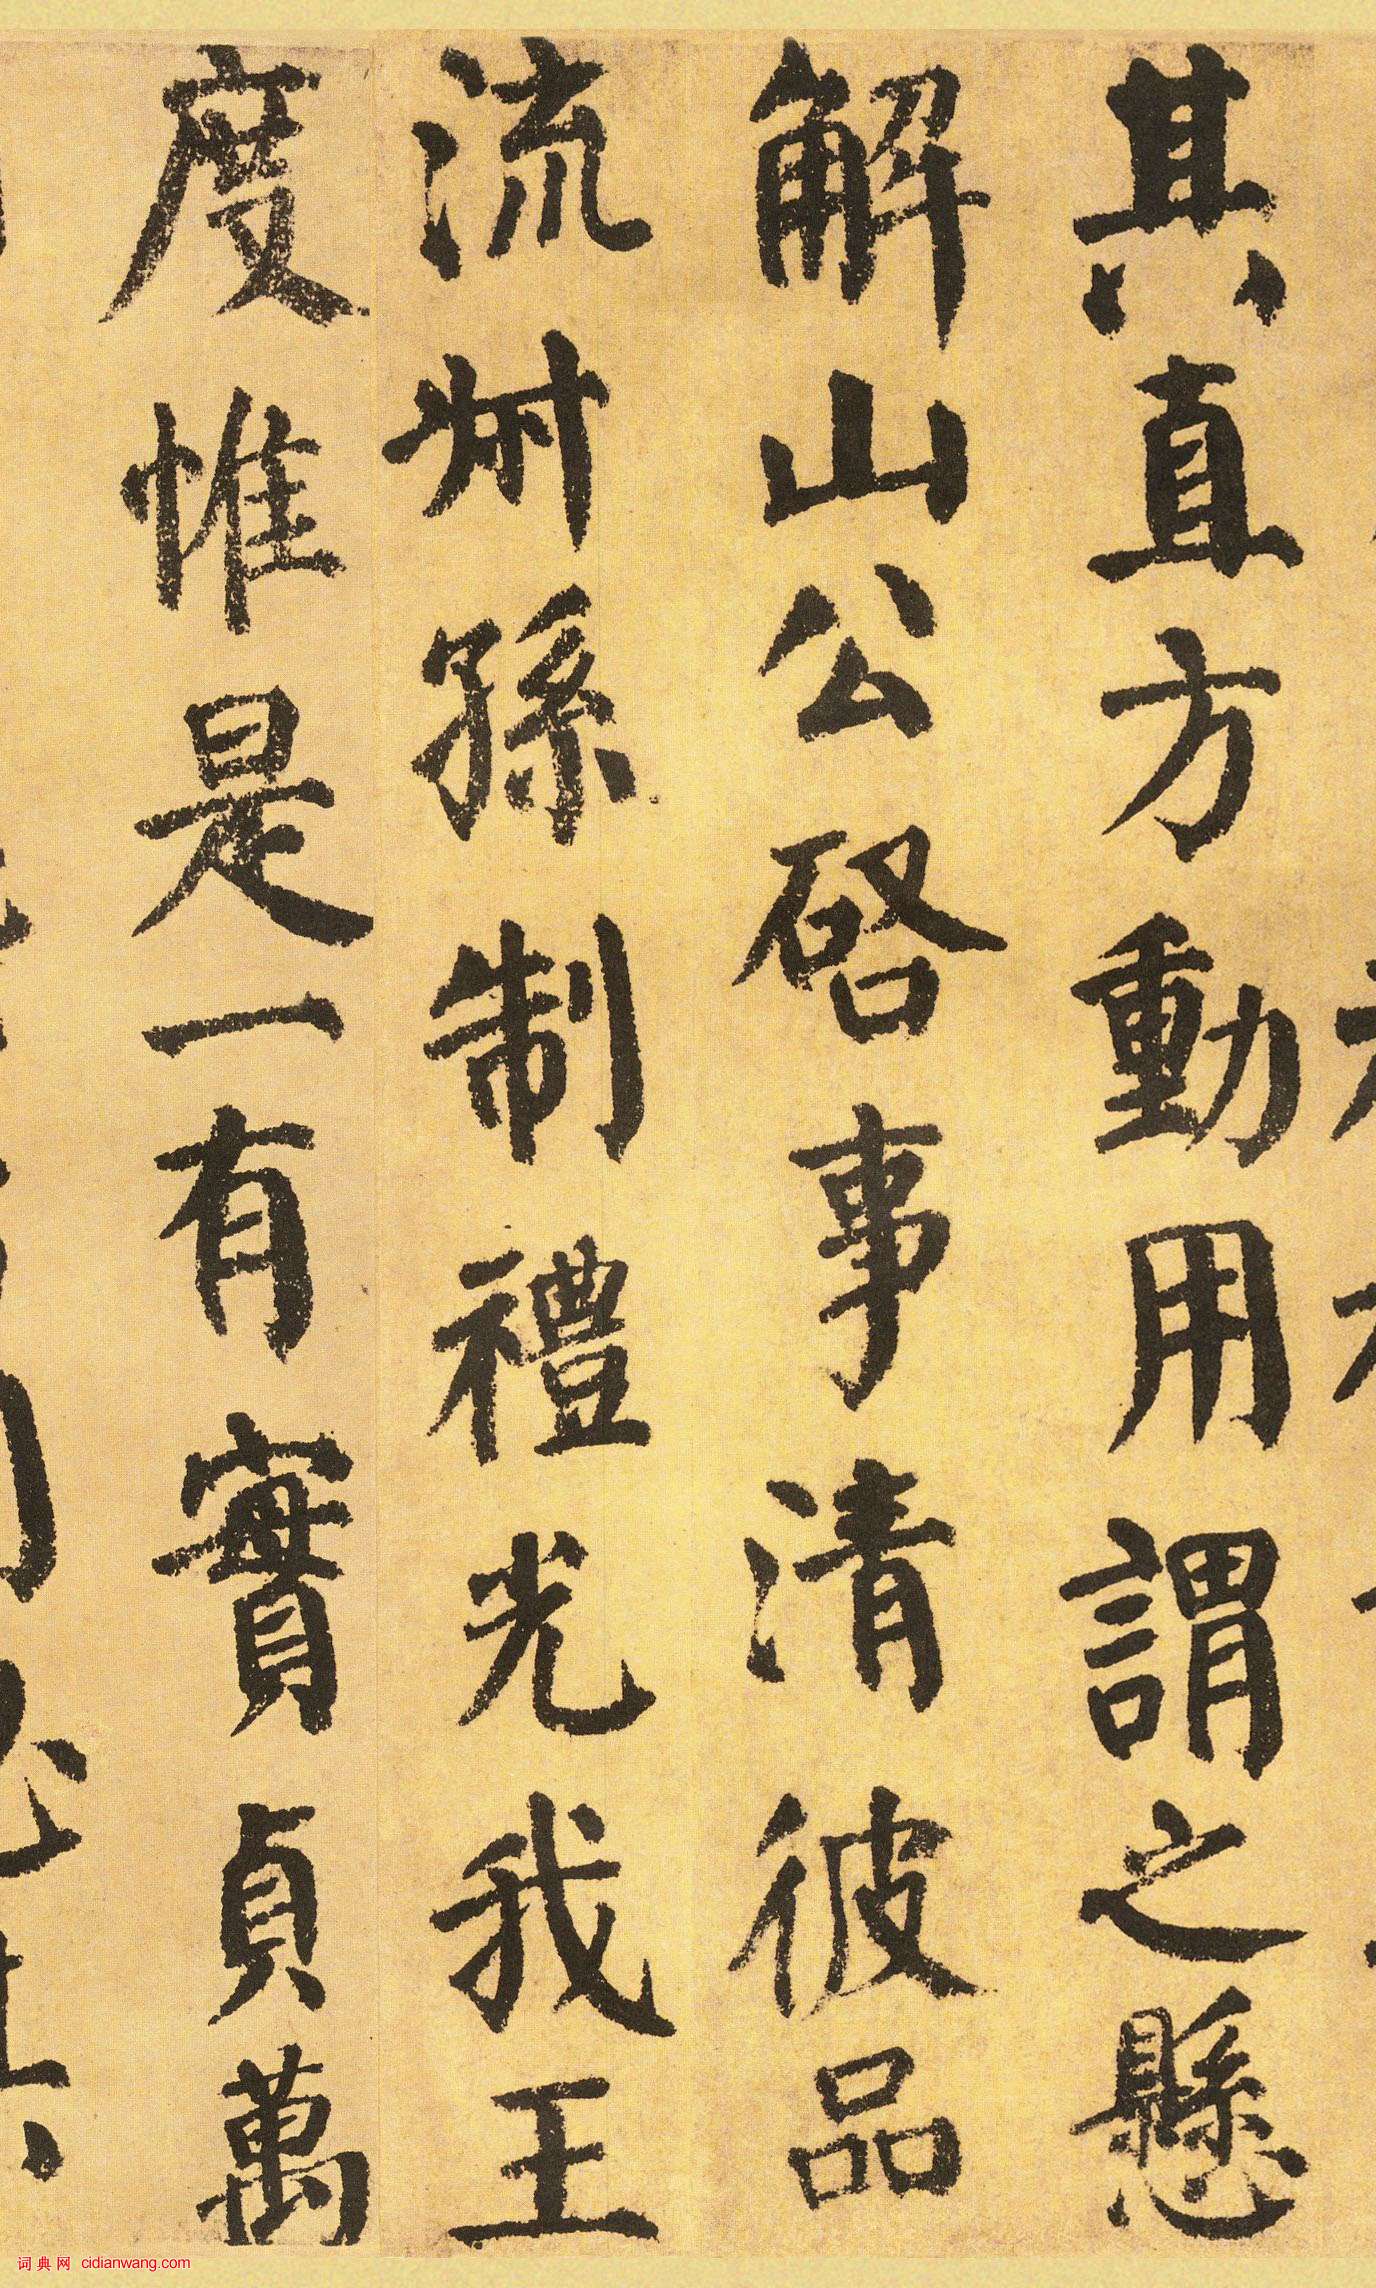 其直方動用謂之懸
解山公啓事清彼品
流叔孫制禮光我王
度惟是一有實貞萬
词典网 cidianwang.com